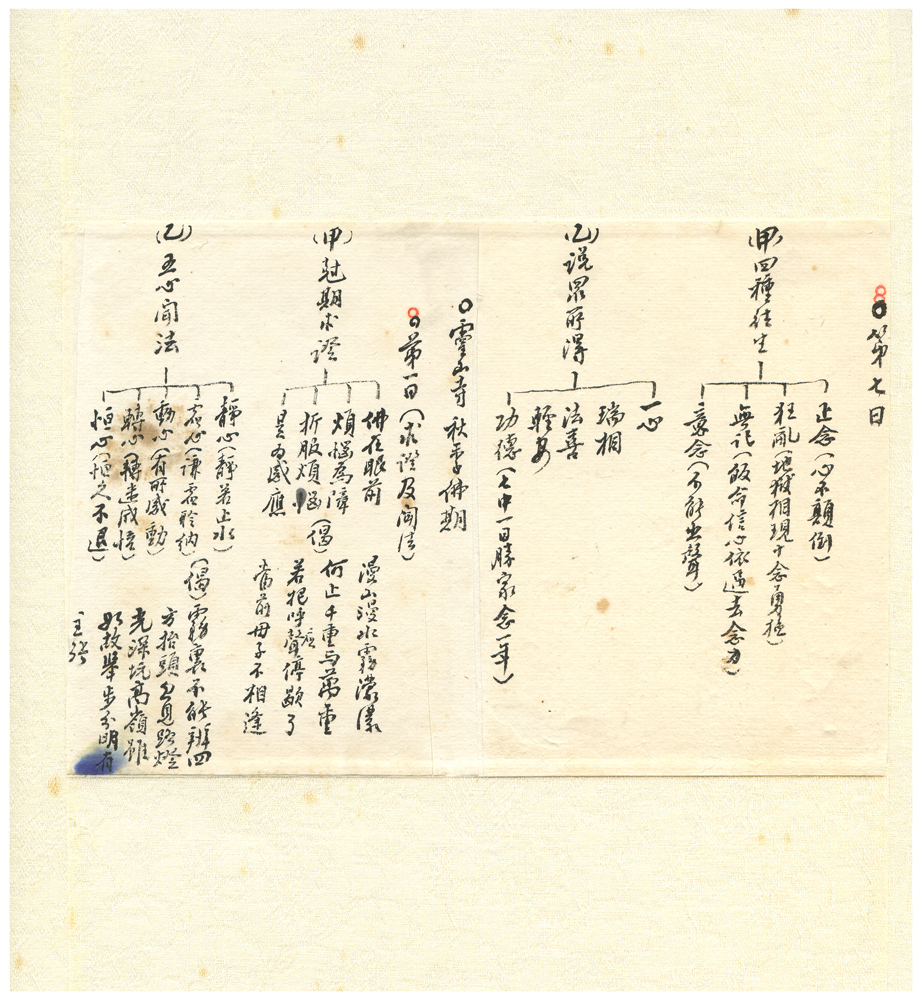 第七日
(甲)四種往生
正念(心不顛倒)
狂亂(地獄相現十念勇猛)
無記(皈命信心依過去念力)
意念(不能出聲)
(乙)說眾所得
一心
瑞相
法喜
輕安
功德(七中一日勝家念一年)
靈山寺 秋季佛期
第一日(求證及聞法)
(甲)尅期求證
佛在眼前
煩惱為障
折服煩惱
是為感應
(偈)
漫山漫水霧濛濛
何止千重與萬重
若把呼聲停歇了
當前母子不相逢
(乙)五心聞法
靜心(靜若止水)
虛心(謙虛聆納)
動心(有所感動)
轉心(轉迷成悟)
恒心(恒久不退)
(偈)霧裏不能辨四
方抬頭忽見路燈
光深坑高嶺雖
如故舉步分明有
主張